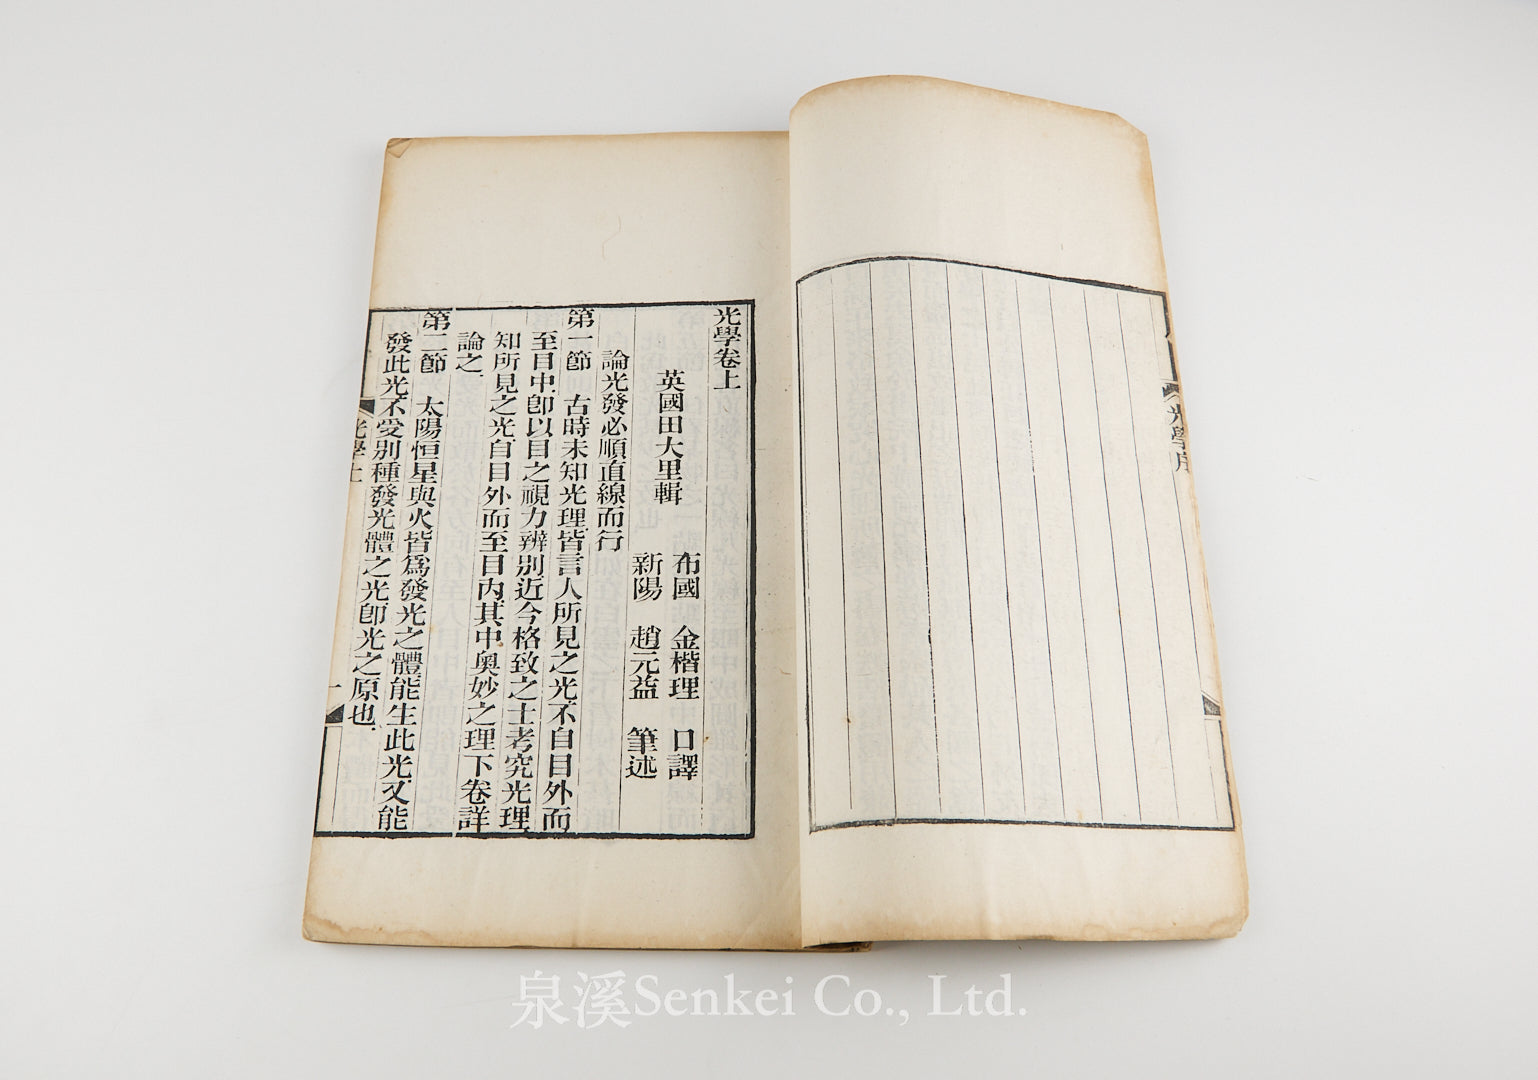 光學序
光學卷上
英國田大里輯
布國　金楷理　口譯
新陽　趙元益　筆述
論光發必順直線而行
第一節　古時未知光理皆言人所見之光不自目外而
至目中卽以目之視力辨別近今格致之士考究光理
知所見之光自目外而至目内其中奧妙之理下卷詳
論之
第二節　太陽恒星與火皆爲發光之體能生此光又能
發此光不受別種發光體之光卽光之原也
光學上
一
泉溪Senkei Co., Ltd.